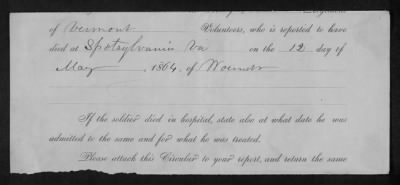 of Vermont Volunteers, who is reported to have
died at Spotsylvania Va on the 12 day of
May, 1864, of Wounds
If the soldier died in hospital, state also at what date he was
admitted to the same and for what he was treated.
Please attach this Circular to your report, and return the same